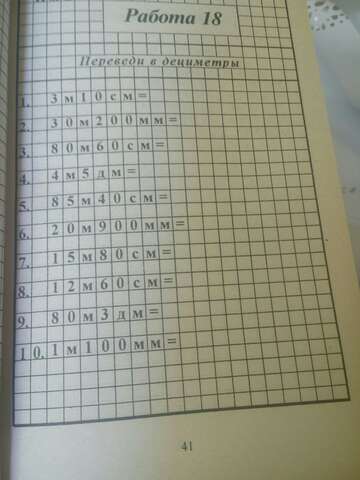 Работа 18
Переведи в дециметры
1. 3м10см=
2. 30м200мм=
3. 80м60см=
4. 4м5дм=
5. 85м40см=
6. 20м900мм=
7. 15м80см=
8. 12м60см=
9. 80м3дм=
10. 1м100мм=
41